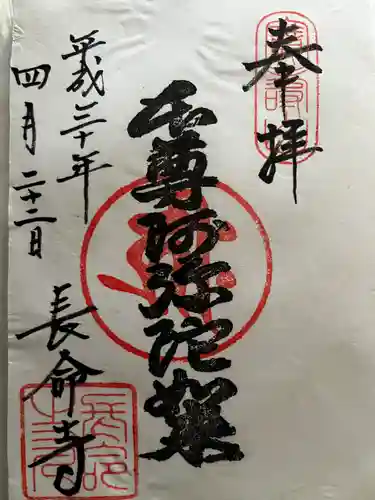 奉拝
千尊阿弥陀叢
平成三十年
四月二十二日
長命寺